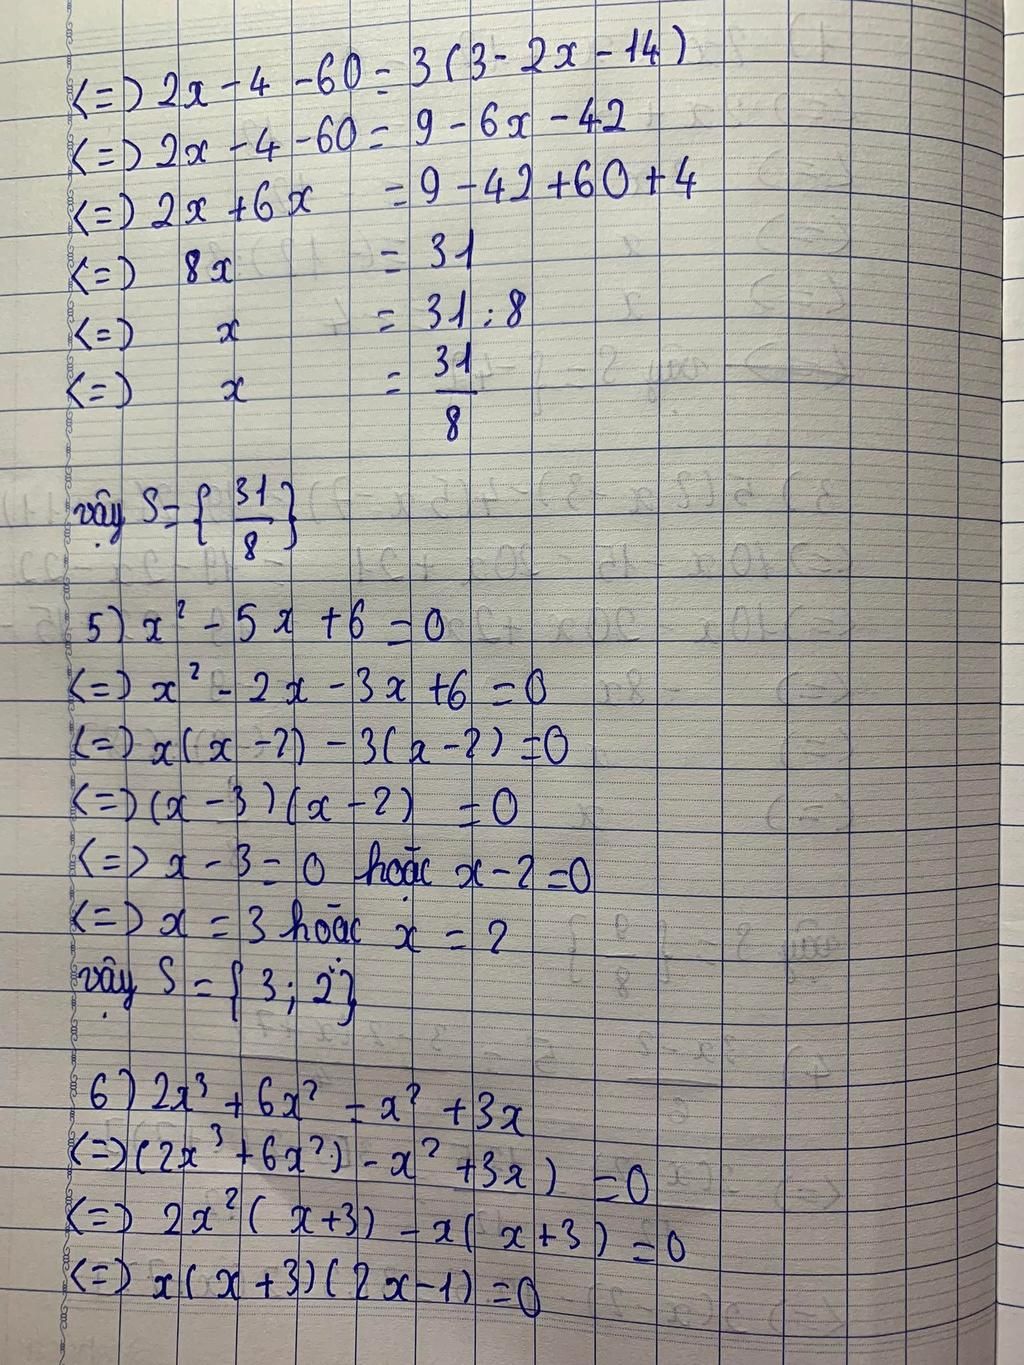 <=> 2x - 4 - 60 = 3(3 - 2x - 14)
<=> 2x - 4 - 60 = 9 - 6x - 42
<=> 2x + 6x = 9 - 42 + 60 + 4
<=> 8x = 31
<=> x = 31 : 8
<=> x = 31/8
vậy S = {31/8}
5) x² - 5x + 6 = 0
<=> x² - 2x - 3x + 6 = 0
<=> x(x - 2) - 3(x - 2) = 0
<=> (x - 3)(x - 2) = 0
<=> x - 3 = 0 hoặc x - 2 = 0
<=> x = 3 hoặc x = 2
vậy S = {3; 2}
6) 2x³ + 6x² = x² + 3x
<=> (2x³ + 6x²) - x² + 3x) = 0
<=> 2x²(x + 3) - x(x + 3) = 0
<=> x(x + 3)(2x - 1) = 0